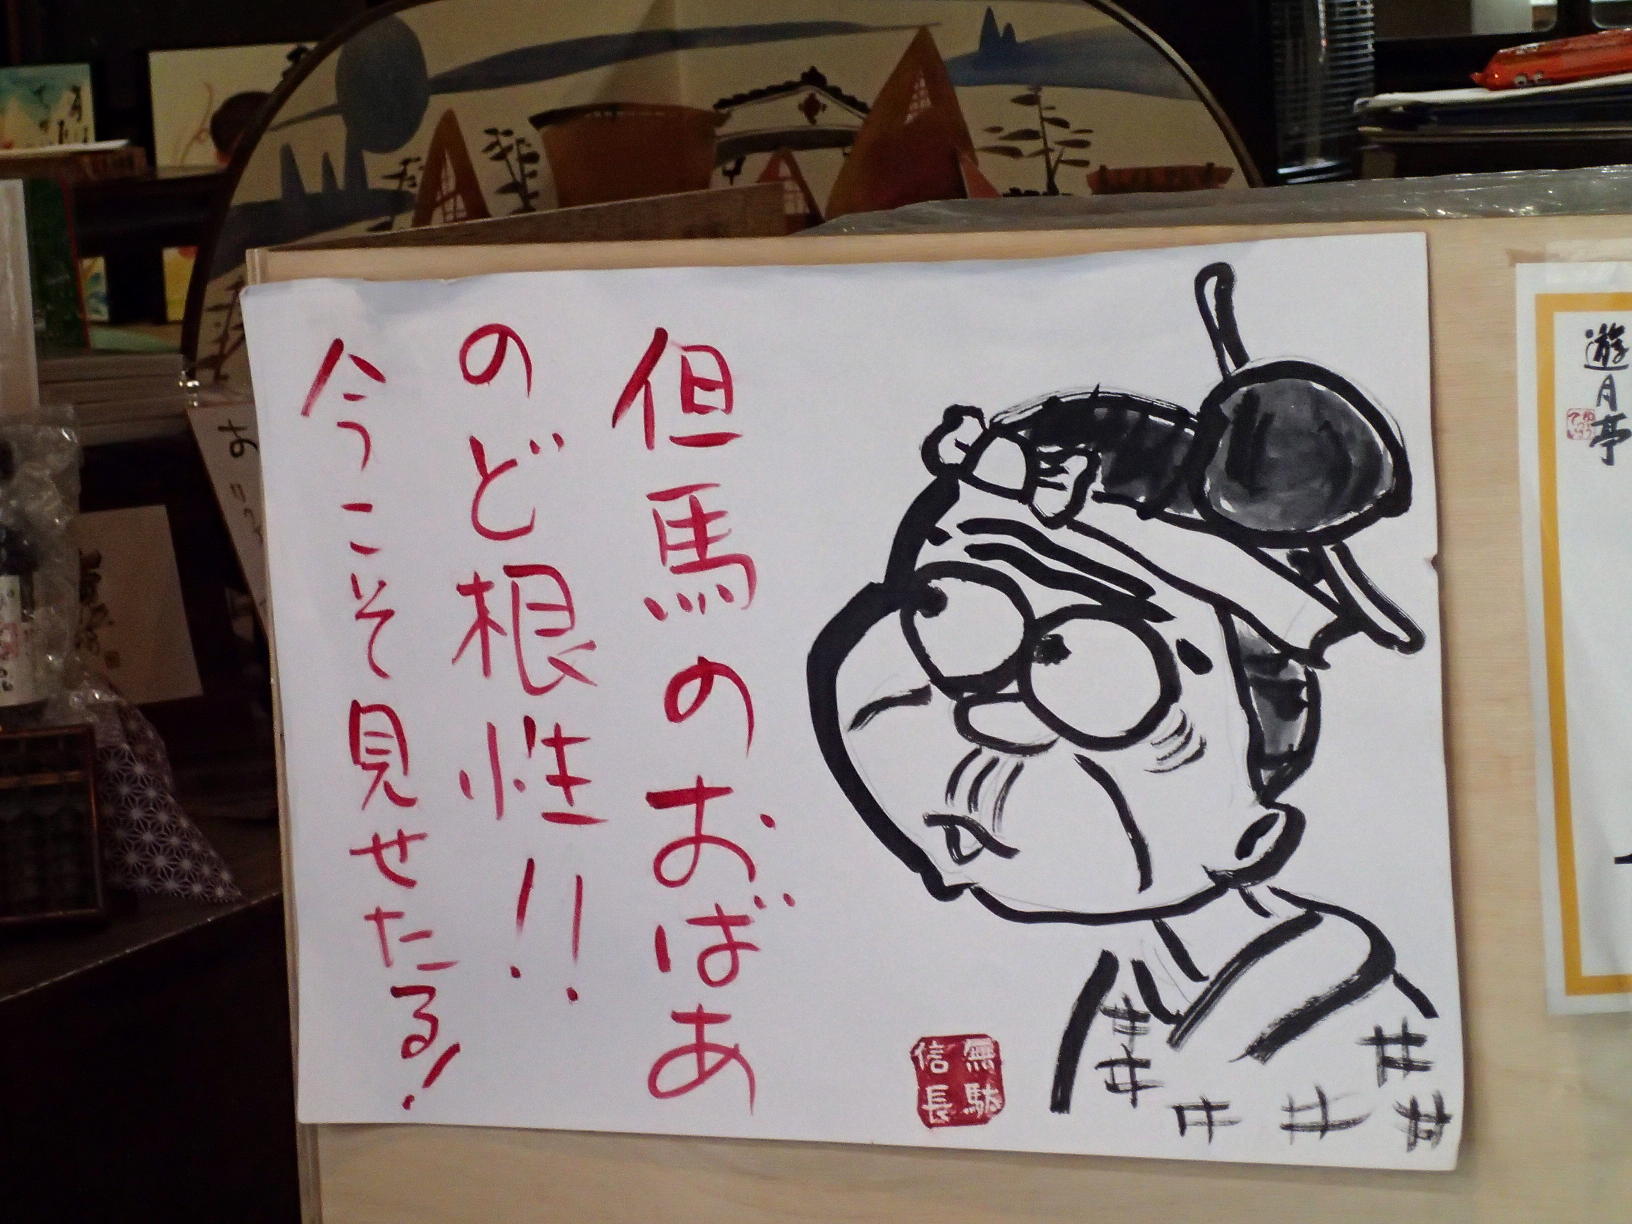 但馬のおばあ
のど根性!!
今こそ見せたる!
無駄
信長
遊月亭